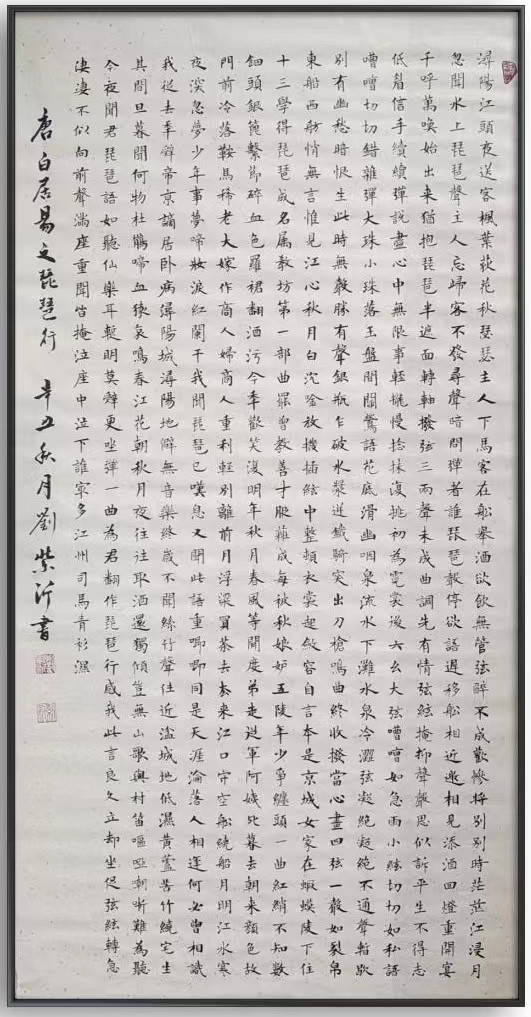 潯陽江頭夜送客楓葉荻花秋瑟瑟主人下馬客在船舉酒欲飲無管弦醉不成歡慘將別別時茫茫江浸月
忽聞水上琵琶聲主人忘歸客不發尋聲暗問彈者誰琵琶聲停欲語遲移船相近邀相見添酒回燈重開宴
千呼萬喚始出來猶抱琵琶半遮面轉軸撥弦三兩聲未成曲調先有情弦絃掩抑聲聲思似訴平生不得志
低眉信手續續彈說盡心中無限事輕攏慢捻抹復挑初為霓裳後六么大弦嘈嘈如急雨小絃切切如私語
嘈嘈切切錯雜彈大珠小珠落玉盤間關鶯語花底滑幽咽泉流水下灘水泉冷澀弦凝絕凝絕不通聲暫歇
別有幽愁暗恨生此時無聲勝有聲銀瓶乍破水漿迸鐵騎突出刀槍鳴曲終收撥當心畫四弦一聲如裂帛
東船西舫悄無言惟見江心秋月白沉吟放機插絃中整頓衣裳起斂容自言本是京城女家在蝦蟆陵下住
十三學得琵琶成名属教坊第一部曲罷曾教善才服粧成每被秋娘妒五陵年少爭纏頭一曲紅綃不知數
鈿頭銀篦擊節碎血色羅裙翻酒污今年歡笑復明年秋月春風等閒度弟走從軍阿姨死暮去朝來顏色故
門前冷落鞍馬稀老大嫁作商人婦商人重利輕別離前月浮梁買茶去去來江口守空船繞船月明江水寒
夜深忽夢少年事夢啼妝淚紅闌干我聞琵琶已嘆息又聞此語重唧唧同是天涯淪落人相逢何必曾相識
我從去年辭帝京謫居臥病潯陽城潯陽地僻無音樂終歲不聞絲竹聲住近湓城地低濕黃蘆苦竹繞宅生
其間旦暮聞何物杜鵑啼血猿哀鳴春江花朝秋月夜往往取酒還獨傾豈無山歌與村笛嘔啞嘲哳難為聽
今夜聞君琵琶語如聽仙樂耳暫明莫辭更坐彈一曲為君翻作琵琶行感我此言良久立却坐促弦絃轉急
淒淒不似向前聲滿座重聞皆掩泣座中泣下誰最多江州司馬青衫濕
唐白居易之琵琶行 辛丑秋月劉紫沂書